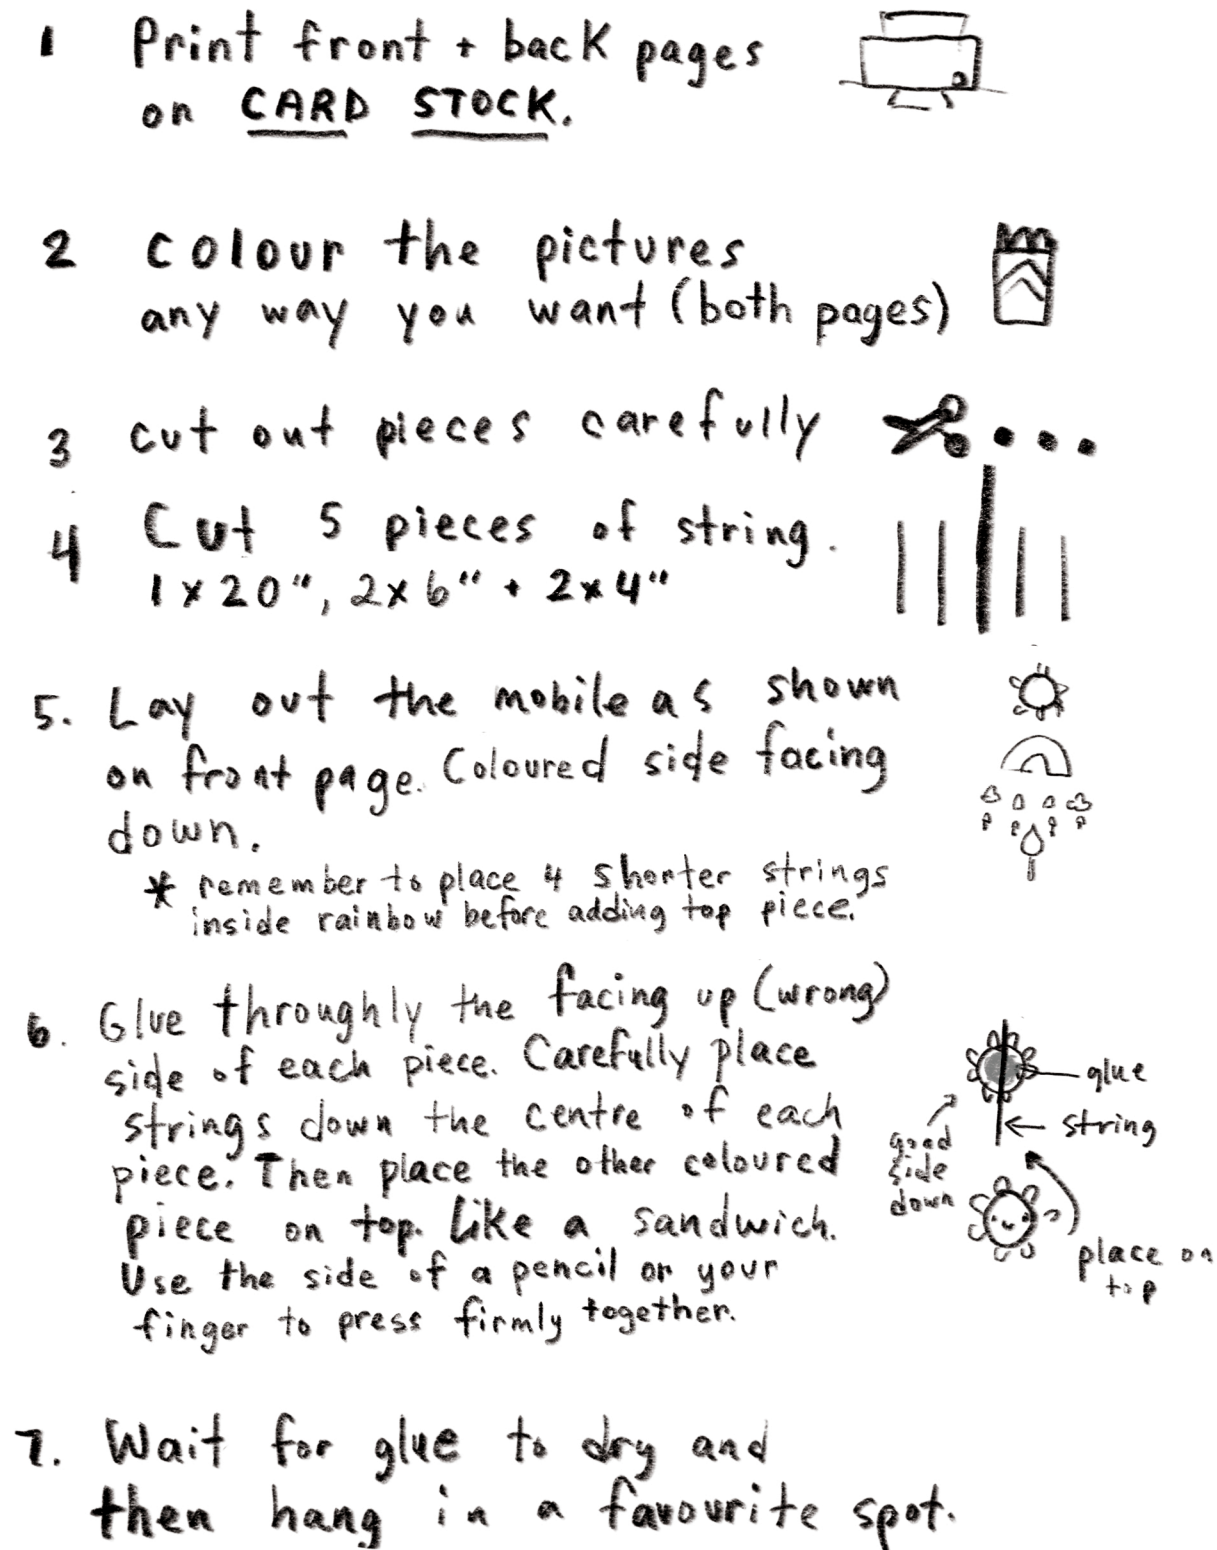 1 Print front + back pages
on CARD STOCK.
2 Colour the pictures
any way you want (both pages)
3 cut out pieces carefully
4 Cut 5 pieces of string.
1 x 20", 2 x 6" + 2 x 4"
5. Lay out the mobile as shown
on front page. Coloured side facing
down.
* remember to place 4 shorter strings
inside rainbow before adding top piece.
6. Glue throughly the facing up (wrong)
side of each piece. Carefully place
strings down the centre of each
piece. Then place the other coloured
piece on top. Like a sandwich.
Use the side of a pencil or your
finger to press firmly together.
glue
string
good
side
down
place on
top
7. Wait for glue to dry and
then hang in a favourite spot.